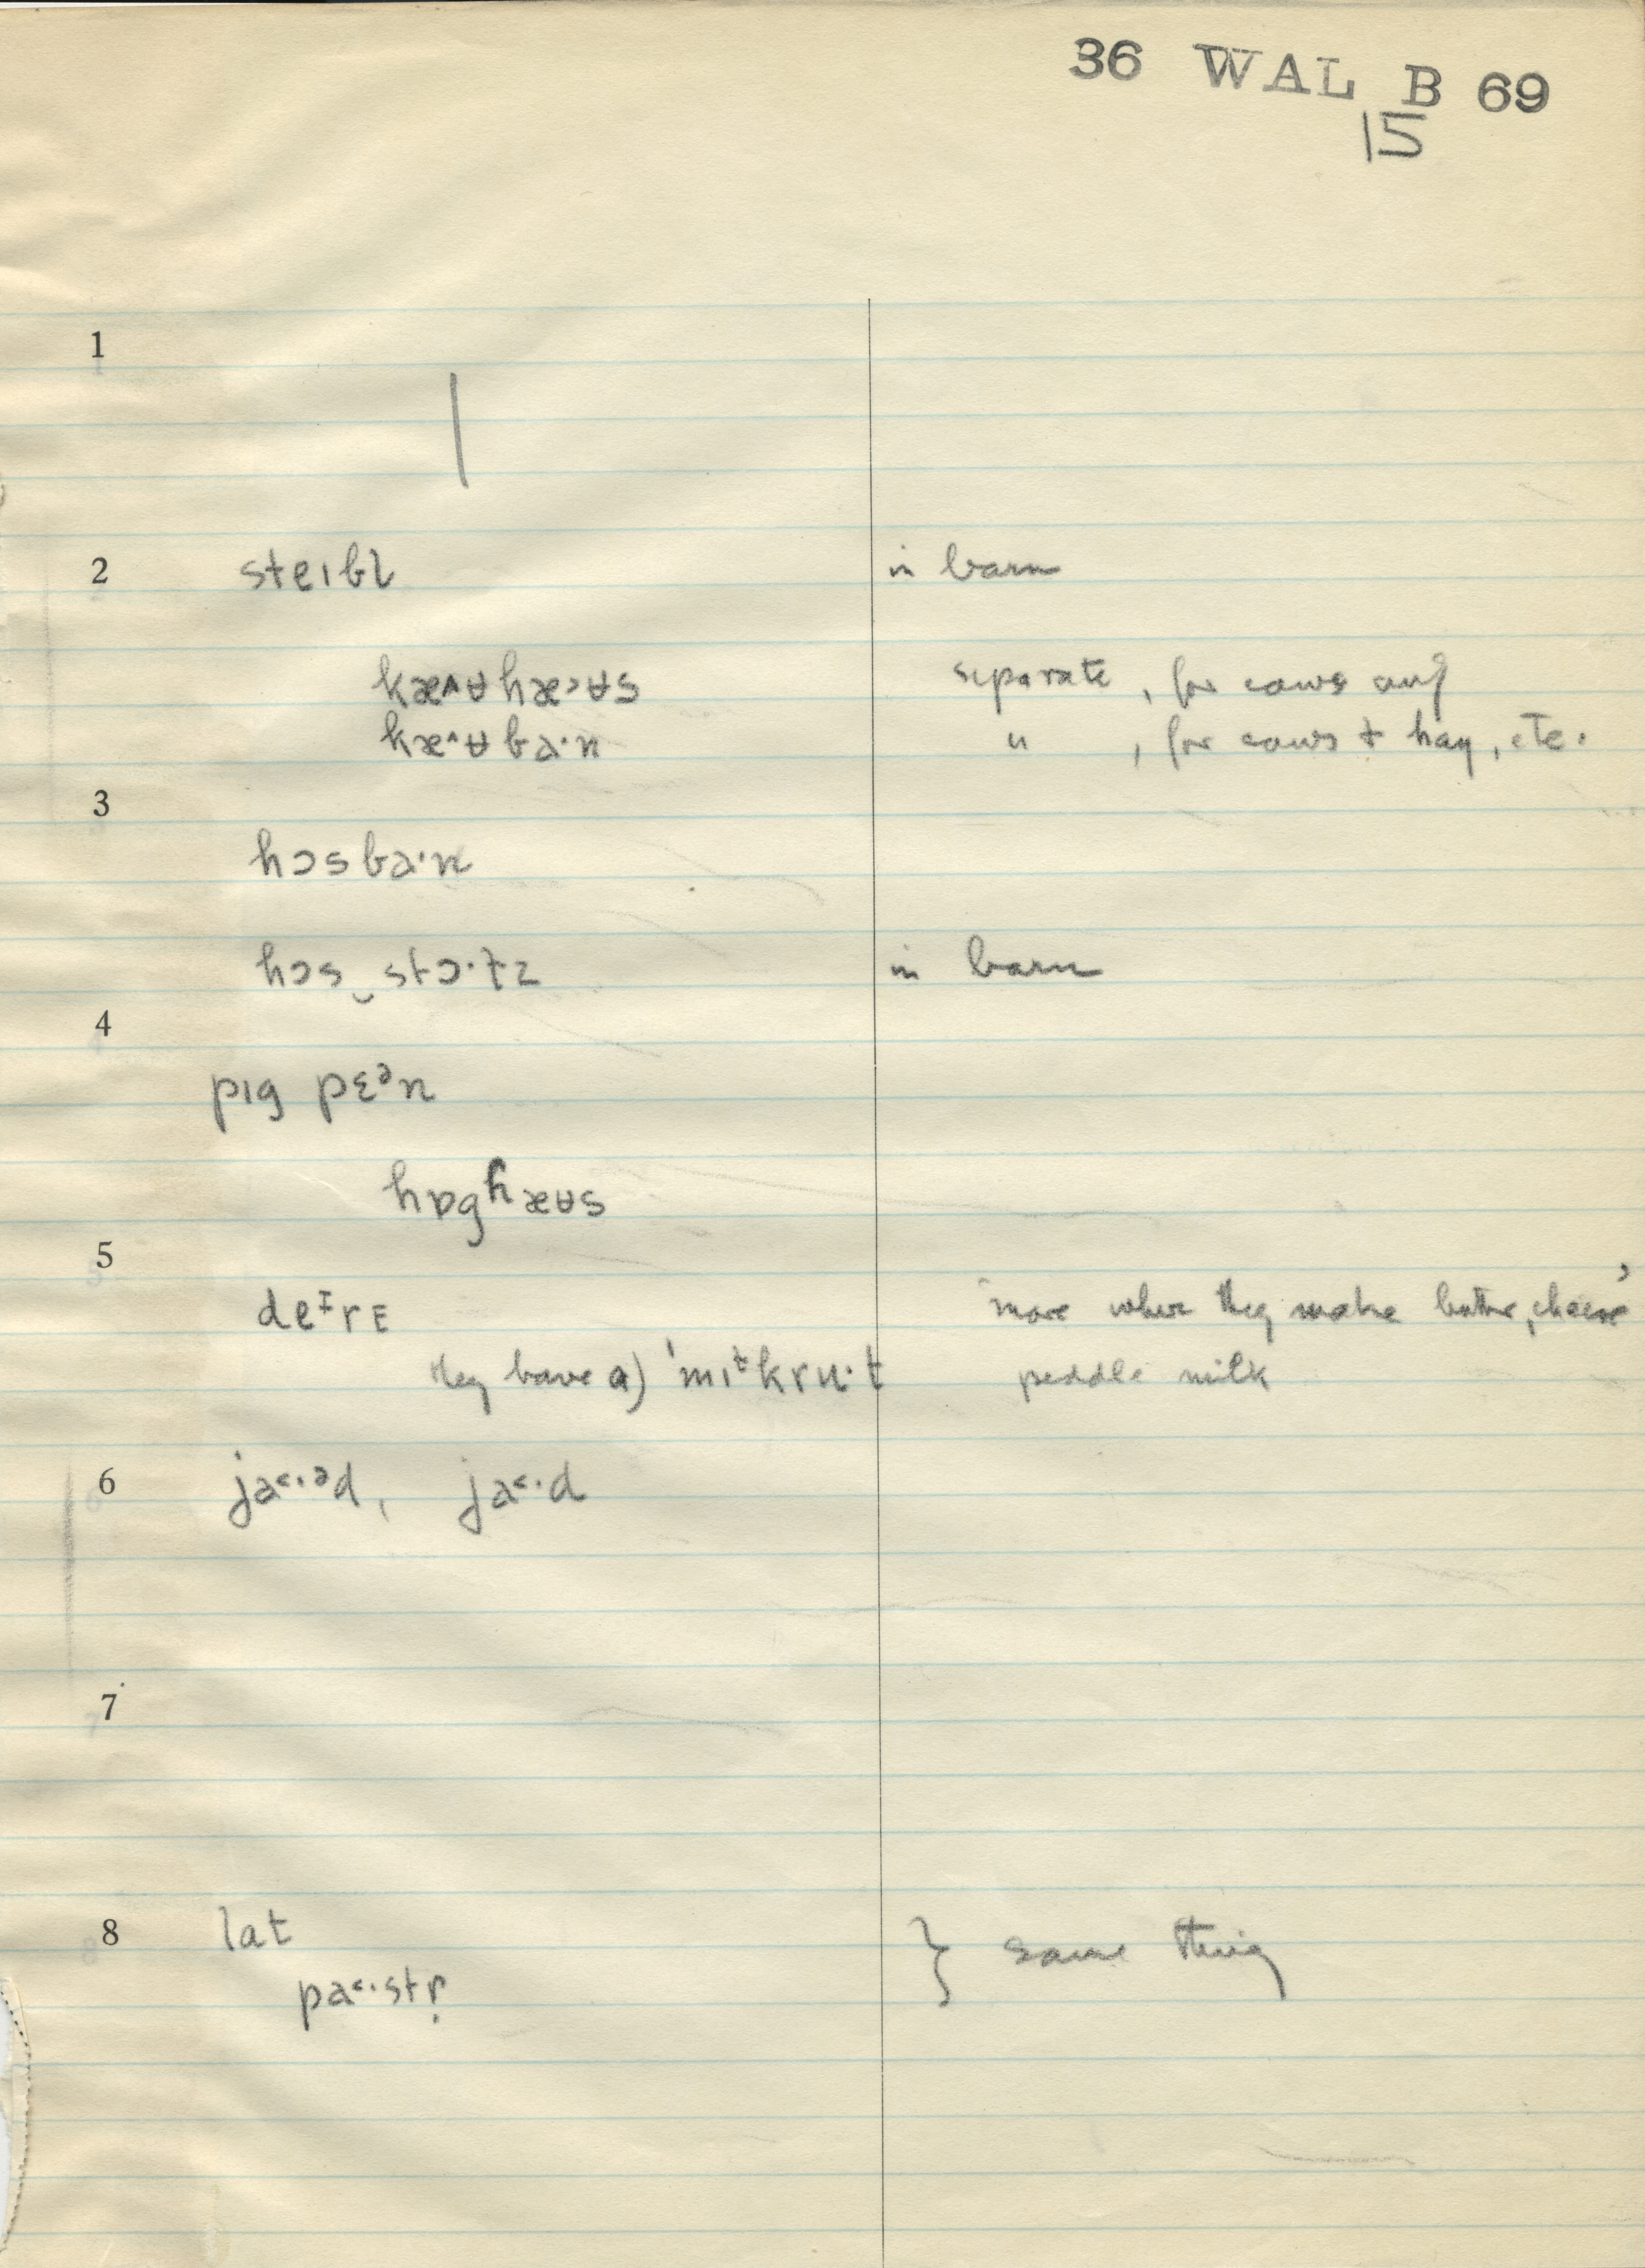 36 WAL B 69
15
1
2 steɪbl in barn
kæ^ʉhæ>ʉs separate, for cows only
kæ^ʉba·n " , for cows + hay, etc.
3
hɔsba·n
hɔs‿stɔ·ɫz in barn
4
pɪg pɛᵊn
hɒghæʉs
5
deᶦrE more where they make butter, cheese,
they have a) 'mɪᵗkru·t peddle milk
6 ja<·ᵊd, ja<·d
7
8 lat } same thing
pa<·stṛ